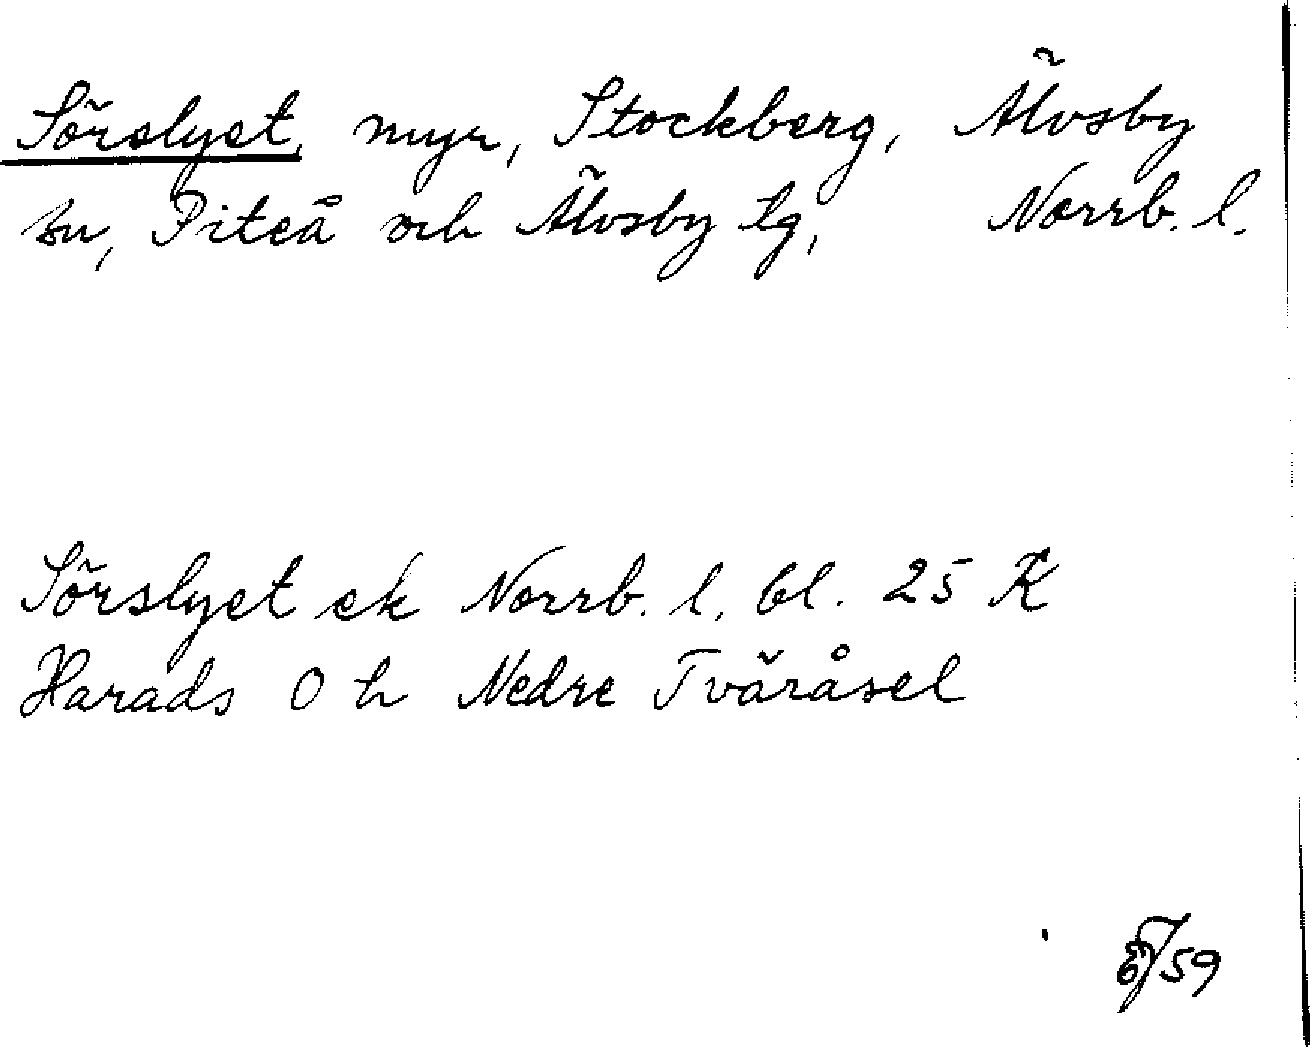 Sörslyet, myr, Stockberg, Älvsby
sn, Piteå och Älvsby tg, Norrb. l.
Sörslyet ek Norrb. l. bl. 25 K
Harads O h Nedre Tväråsel
/59